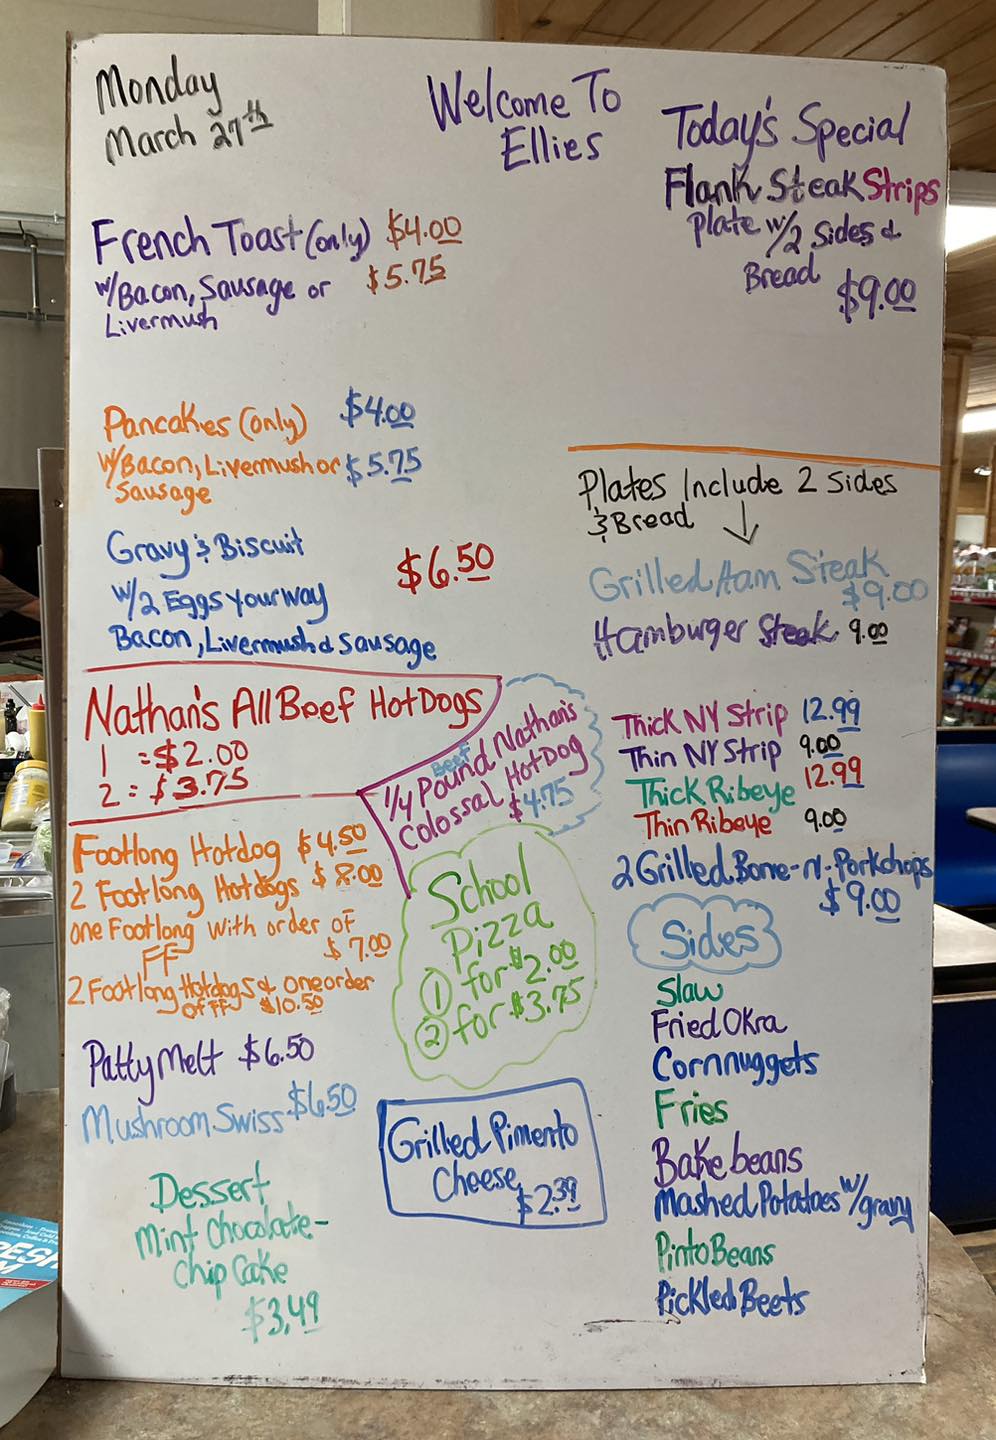 Monday
March 27th
Welcome To
Ellies
Today's Special
Flank Steak Strips
Plate w/2 Sides &
Bread
$9.00
French Toast (only) $4.00
w/Bacon, Sausage or $5.75
Livermush
Pancakes (only) $4.00
w/Bacon, Livermush or $5.75
Sausage
Gravy & Biscuit
$6.50
w/2 Eggs your way
Bacon, Livermush & Sausage
Nathan's All Beef HotDogs
1 = $2.00
2 = $3.75
Beef
1/4 Pound Nathan's
Colossal HotDog
$4.75
Footlong Hotdog $4.50
2 Footlong Hotdogs $8.00
one Footlong with order of
FF $7.00
2 Footlong Hotdogs & one order
of FF $10.50
Patty Melt $6.50
Mushroom Swiss $6.50
Dessert
Mint Chocolate-
Chip Cake
$3.49
School
Pizza
① for $2.00
② for $3.75
Grilled Pimento
Cheese
$2.39
Plates Include 2 Sides
& Bread
Grilled Ham Steak
$9.00
Hamburger Steak 9.00
Thick NY Strip 12.99
Thin NY Strip 9.00
Thick Ribeye 12.99
Thin Ribeye 9.00
2 Grilled Bone-n-Porkchops
$9.00
Sides
Slaw
Fried Okra
Cornnuggets
Fries
Bake beans
Mashed Potatoes w/gravy
Pinto Beans
Pickled Beets